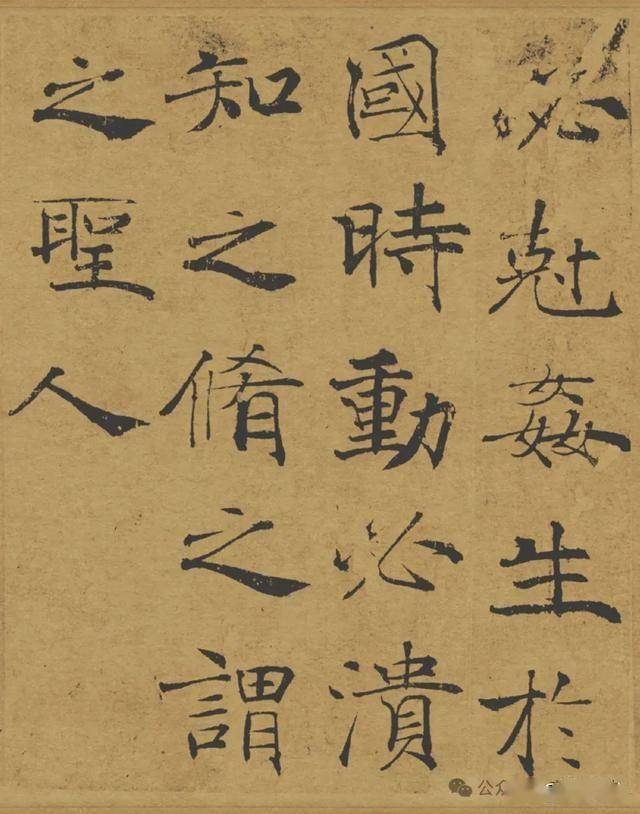 必尅姦生於
國時動必潰
知之脩之謂
之聖人
公众